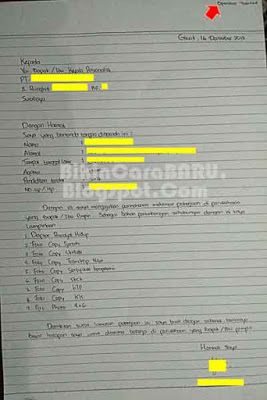 Garut, 16 Desember 2013
Kepada
Yth. Bapak / Ibu Kepala Personalia
PT.
Jl. Rungkut
Surabaya
Dengan Hormat
Saya yang bertanda tangan dibawah ini :
Nama :
Alamat :
Tempat tanggal lahir :
Agama :
Pendidikan terakhir :
NO HP / Tlp :
BikinCaraBARU.
Blogspot.Com
Dengan ini saya mengajukan permohonan melamar pekerjaan di perusahaan
yang Bapak / Ibu Pimpin. Sebagai bahan pertimbangan
Lampirkan :
1. Daftar Riwayat Hidup
2. Foto Copy Ijazah
3. Foto Copy
4. Foto Copy Transkip Nilai
5. Foto Copy Sertifikat kompetensi
6. Foto Copy SKCK
7. Foto Copy KTP
8. Foto Copy KK
9. Pas Photo 4x6
Demikian surat lamaran pekerjaan ini saya buat dengan
besar harapan saya untuk diterima bekerja di perusahaan yang Bapak / Ibu pimpin.
Hormat Saya